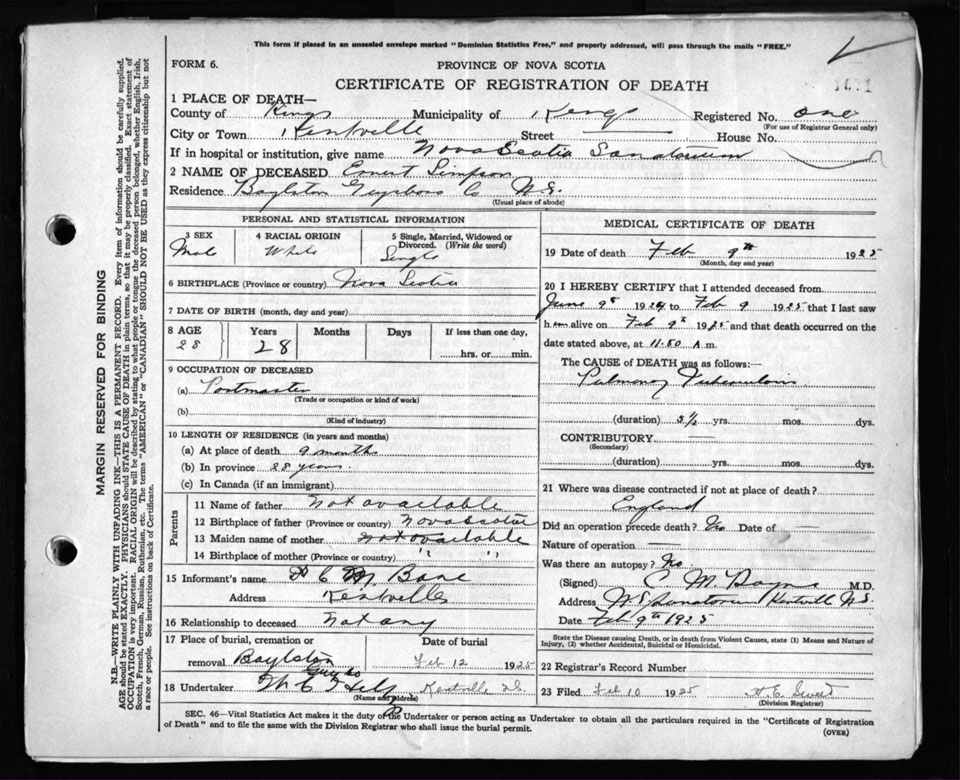 This form if placed in an unsealed envelope marked "Dominion Statistics Free," and properly addressed, will pass through the mails "FREE."
FORM 6.
PROVINCE OF NOVA SCOTIA
CERTIFICATE OF REGISTRATION OF DEATH
1 PLACE OF DEATH—
County of Kings Municipality of Kings Registered No. one
(For use of Registrar General only)
City or Town Kentville Street House No.
If in hospital or institution, give name Nova Scotia Sanatorium
2 NAME OF DECEASED Ernest Simpson
Residence Boylston Guysboro Co N.S.
(Usual place of abode)
PERSONAL AND STATISTICAL INFORMATION
3 SEX 4 RACIAL ORIGIN 5 Single, Married, Widowed or Divorced. (Write the word)
Male White Single
6 BIRTHPLACE (Province or country) Nova Scotia
7 DATE OF BIRTH (month, day and year)
8 AGE Years Months Days If less than one day,
28 28 hrs. or min.
9 OCCUPATION OF DECEASED
(a) Postmaster
(Trade or occupation or kind of work)
(b)
(Kind of industry)
10 LENGTH OF RESIDENCE (in years and months)
(a) At place of death 9 months
(b) In province 28 years.
(c) In Canada (if an immigrant)
Parents
11 Name of father Not available
12 Birthplace of father (Province or country) Nova Scotia
13 Maiden name of mother Not available
14 Birthplace of mother (Province or country) " "
15 Informant's name
Address Kentville
16 Relationship to deceased Not any
17 Place of burial, cremation or Date of burial
removal Boylston Guy Co Feb 12 1925
18 Undertaker Kentville N.S.
(Name and Address)
MEDICAL CERTIFICATE OF DEATH
19 Date of death Feb 9th 1925
(Month, day and year)
20 I HEREBY CERTIFY that I attended deceased from
June 9th 1924 to Feb 9 1925 that I last saw
him alive on Feb 9th 1925 and that death occurred on
date stated above, at 11.50 A.m.
The CAUSE of DEATH was as follows:—
Pulmonary Tuberculosis
(duration) 3½ yrs. mos. dys.
CONTRIBUTORY
(Secondary)
(duration) yrs. mos. dys.
21 Where was disease contracted if not at place of death?
England
Did an operation precede death? No Date of
Nature of operation
Was there an autopsy? No
(Signed) C M M.D.
Address N S Sanatorium Kentville N.S.
Date Feb 9th 1925
State the Disease causing Death, or in death from Violent Causes, state (1) Means and Nature of
Injury, (2) whether Accidental, Suicidal or Homicidal.
22 Registrar's Record Number
23 Filed Feb 10 1925
(Division Registrar)
SEC. 46—Vital Statistics Act makes it the duty of the Undertaker or person acting as Undertaker to obtain all the particulars required in the "Certificate of Registration
of Death" and to file the same with the Division Registrar who shall issue the burial permit.
(OVER)
MARGIN RESERVED FOR BINDING
N.B.—WRITE PLAINLY WITH UNFADING INK—THIS IS A PERMANENT RECORD. Every item of information should be carefully supplied.
AGE should be stated EXACTLY. PHYSICIANS should STATE CAUSE OF DEATH in plain terms, so that it may be properly classified. Exact statement of
OCCUPATION is very important. RACIAL ORIGIN will be described by stating to what people or tongue the deceased person belonged, whether English, Irish,
Scotch, French, German, Russian, Ruthenian, etc. The terms "AMERICAN" or "CANADIAN" SHOULD NOT BE USED as they express citizenship but not
a race or people. See instructions on back of Certificate.